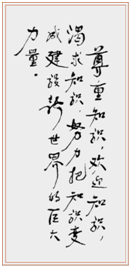 尊重知识，欢迎知识，
渴求知识，努力把知识变
成建设新世界的巨大
力量。